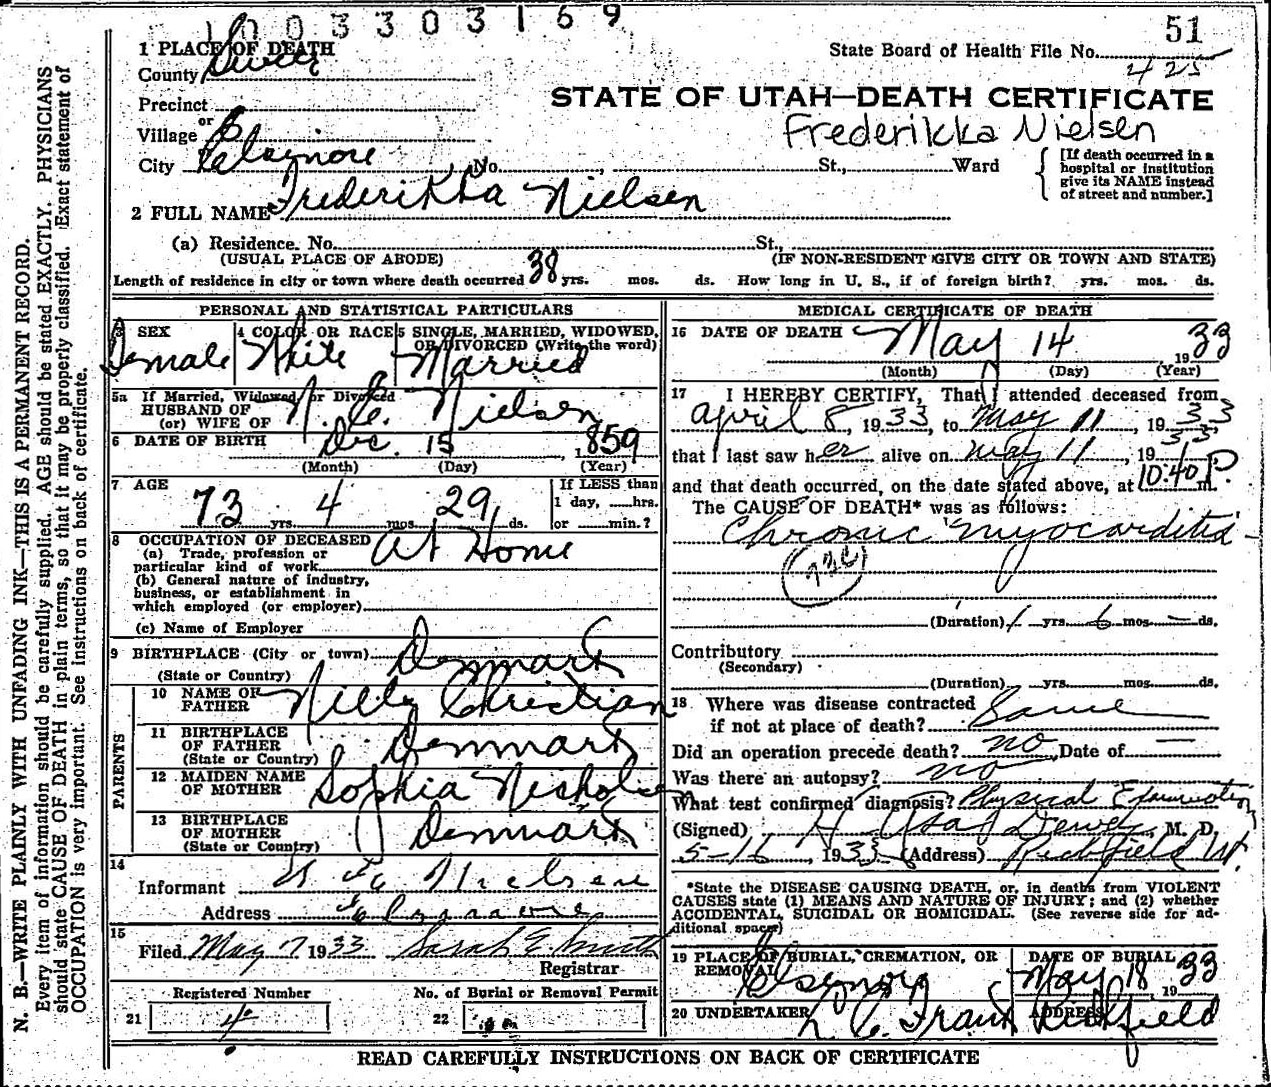 1003303169
51
1 PLACE OF DEATH
State Board of Health File No.
County Sevier
425
Precinct
STATE OF UTAH—DEATH CERTIFICATE
or
Village
Frederikka Nielsen
City Elsinore No. St., Ward
[If death occurred in a hospital or institution give its NAME instead of street and number.]
2 FULL NAME Frederikka Nielsen
(a) Residence. No. St.,
(USUAL PLACE OF ABODE) (IF NON-RESIDENT GIVE CITY OR TOWN AND STATE)
Length of residence in city or town where death occurred 38 yrs. mos. ds. How long in U. S., if of foreign birth? yrs. mos. ds.
PERSONAL AND STATISTICAL PARTICULARS
3 SEX
Female
4 COLOR OR RACE
White
5 SINGLE, MARRIED, WIDOWED, OR DIVORCED (Write the word)
Married
5a If Married, Widowed, or Divorced
HUSBAND OF
(or) WIFE OF N. C. Nielsen
6 DATE OF BIRTH Dec. 15, 1859
(Month) (Day) (Year)
7 AGE
73 yrs. 4 mos. 29 ds.
If LESS than
1 day, hrs.
or min.?
8 OCCUPATION OF DECEASED
(a) Trade, profession or
particular kind of work At Home
(b) General nature of industry,
business, or establishment in
which employed (or employer)
(c) Name of Employer
9 BIRTHPLACE (City or town) Denmark
(State or Country)
PARENTS
10 NAME OF
FATHER Christian
11 BIRTHPLACE
OF FATHER Denmark
(State or Country)
12 MAIDEN NAME
OF MOTHER Sophia
13 BIRTHPLACE
OF MOTHER Denmark
(State or Country)
14
Informant Nielsen
Address Elsinore
15
Filed May 1933 Sarah E. Smith
Registrar
Registered Number
No. of Burial or Removal Permit
21 4
22
MEDICAL CERTIFICATE OF DEATH
16 DATE OF DEATH May 14, 1933
(Month) (Day) (Year)
17 I HEREBY CERTIFY, That I attended deceased from
April 8, 1933, to May 11, 1933
that I last saw her alive on May 11, 1933
and that death occurred, on the date stated above, at 10:40 P m.
The CAUSE OF DEATH* was as follows:
Chronic Myocarditis
(Duration) 1 yrs. 6 mos. — ds.
Contributory
(Secondary)
(Duration) yrs. mos. ds.
18 Where was disease contracted
if not at place of death? Same
Did an operation precede death? no Date of —
Was there an autopsy? no
What test confirmed diagnosis? Physical Examination
(Signed) H Asa Dewey, M. D.
5-16, 1933 (Address) Richfield Ut.
*State the DISEASE CAUSING DEATH, or, in deaths from VIOLENT
CAUSES state (1) MEANS AND NATURE OF INJURY; and (2) whether
ACCIDENTAL, SUICIDAL OR HOMICIDAL. (See reverse side for ad-
ditional space)
19 PLACE OF BURIAL, CREMATION, OR
REMOVAL
Elsinore
DATE OF BURIAL
May 18, 1933
20 UNDERTAKER
ADDRESS
Richfield
READ CAREFULLY INSTRUCTIONS ON BACK OF CERTIFICATE
N. B.—WRITE PLAINLY WITH UNFADING INK—THIS IS A PERMANENT RECORD.
Every item of information should be carefully supplied. AGE should be stated EXACTLY. PHYSICIANS
should state CAUSE OF DEATH in plain terms, so that it may be properly classified. Exact statement of
OCCUPATION is very important. See instructions on back of certificate.